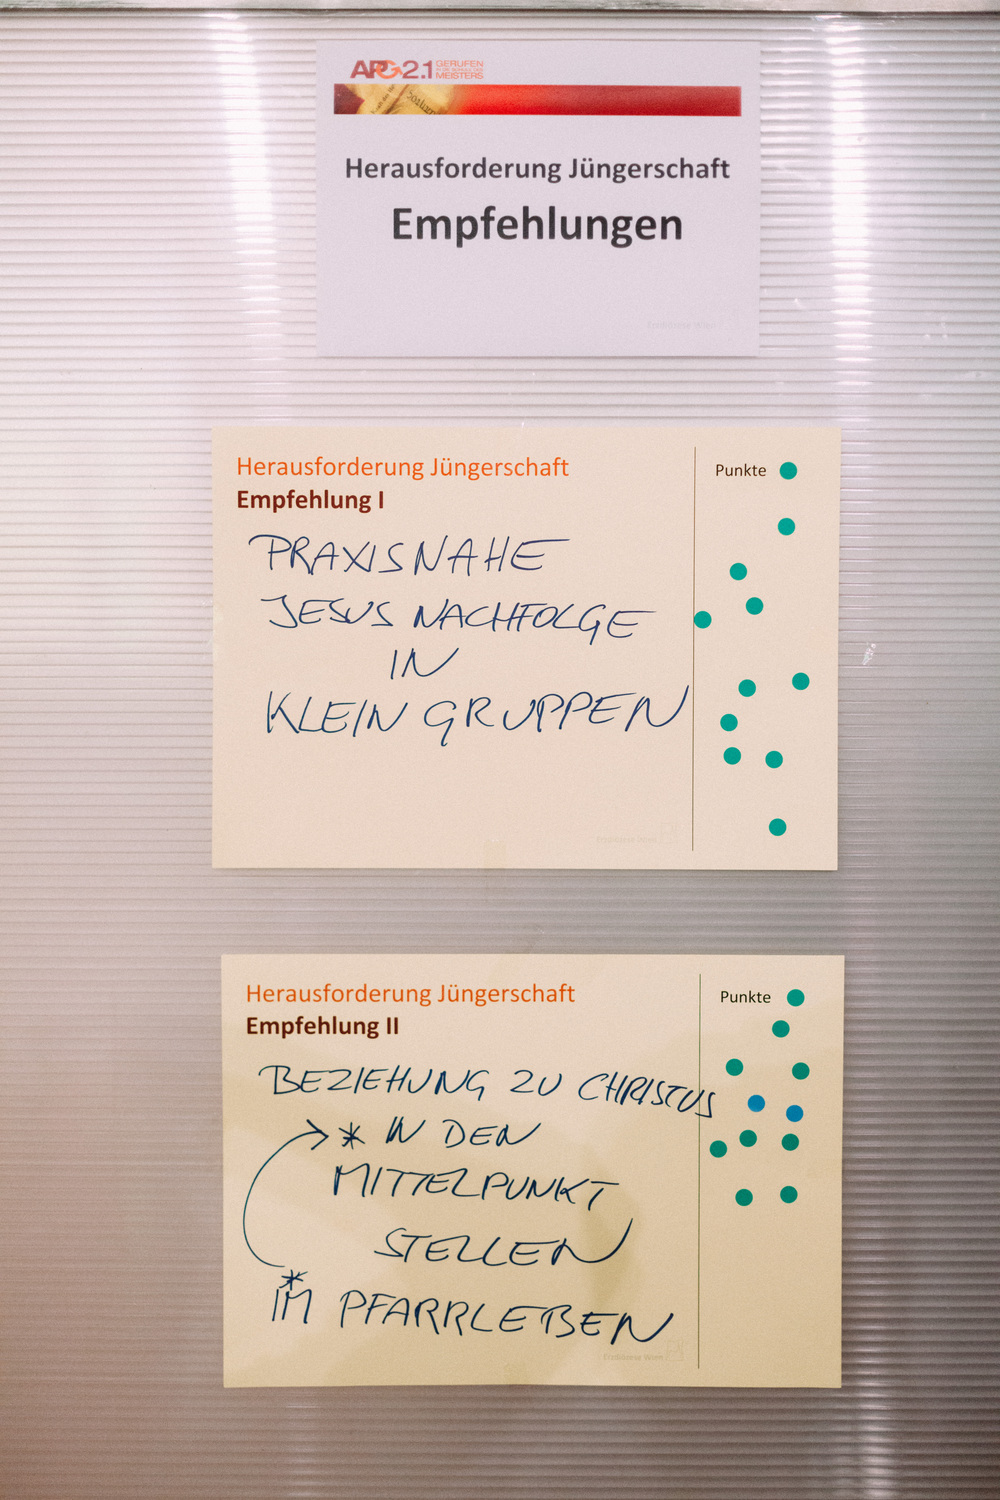 APG2.1 GERUFEN
IN DIE SCHULE DES
MEISTERS
Herausforderung Jüngerschaft
Empfehlungen
Erzdiözese Wien
Herausforderung Jüngerschaft
Empfehlung I
Punkte
PRAXISNAHE
JESUS NACHFOLGE
IN
KLEIN GRUPPEN
Erzdiözese Wien
Herausforderung Jüngerschaft
Empfehlung II
Punkte
BEZIEHUNG ZU CHRISTUS
* IN DEN
MITTELPUNKT
STELLEN
*
IM PFARRLEBEN
Erzdiözese Wien